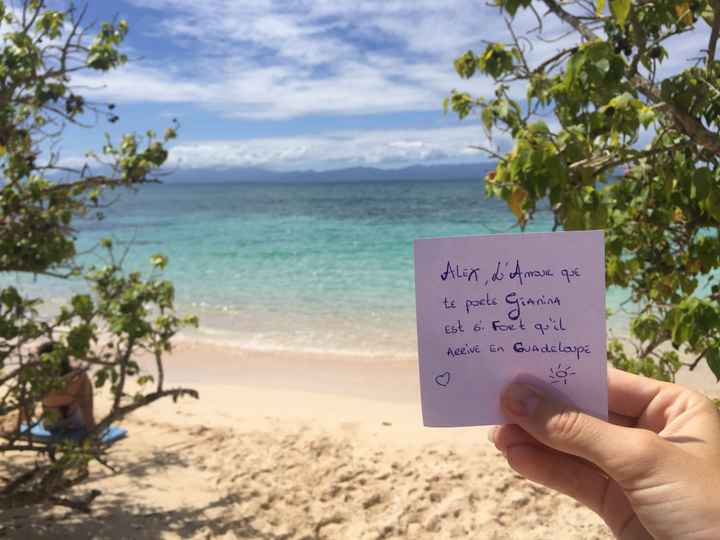 Alex, l'Amour que
te porte Gianina
est si Fort qu'il
arrive en Guadeloupe